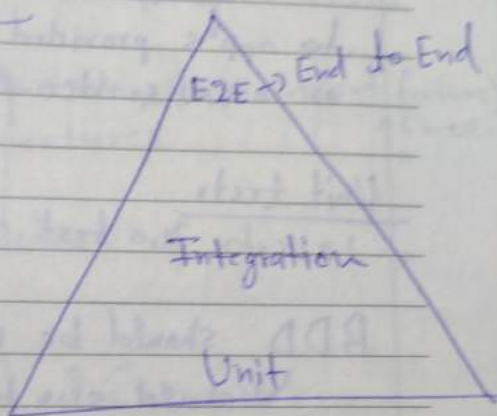 E2E → End to End
Integration
Unit